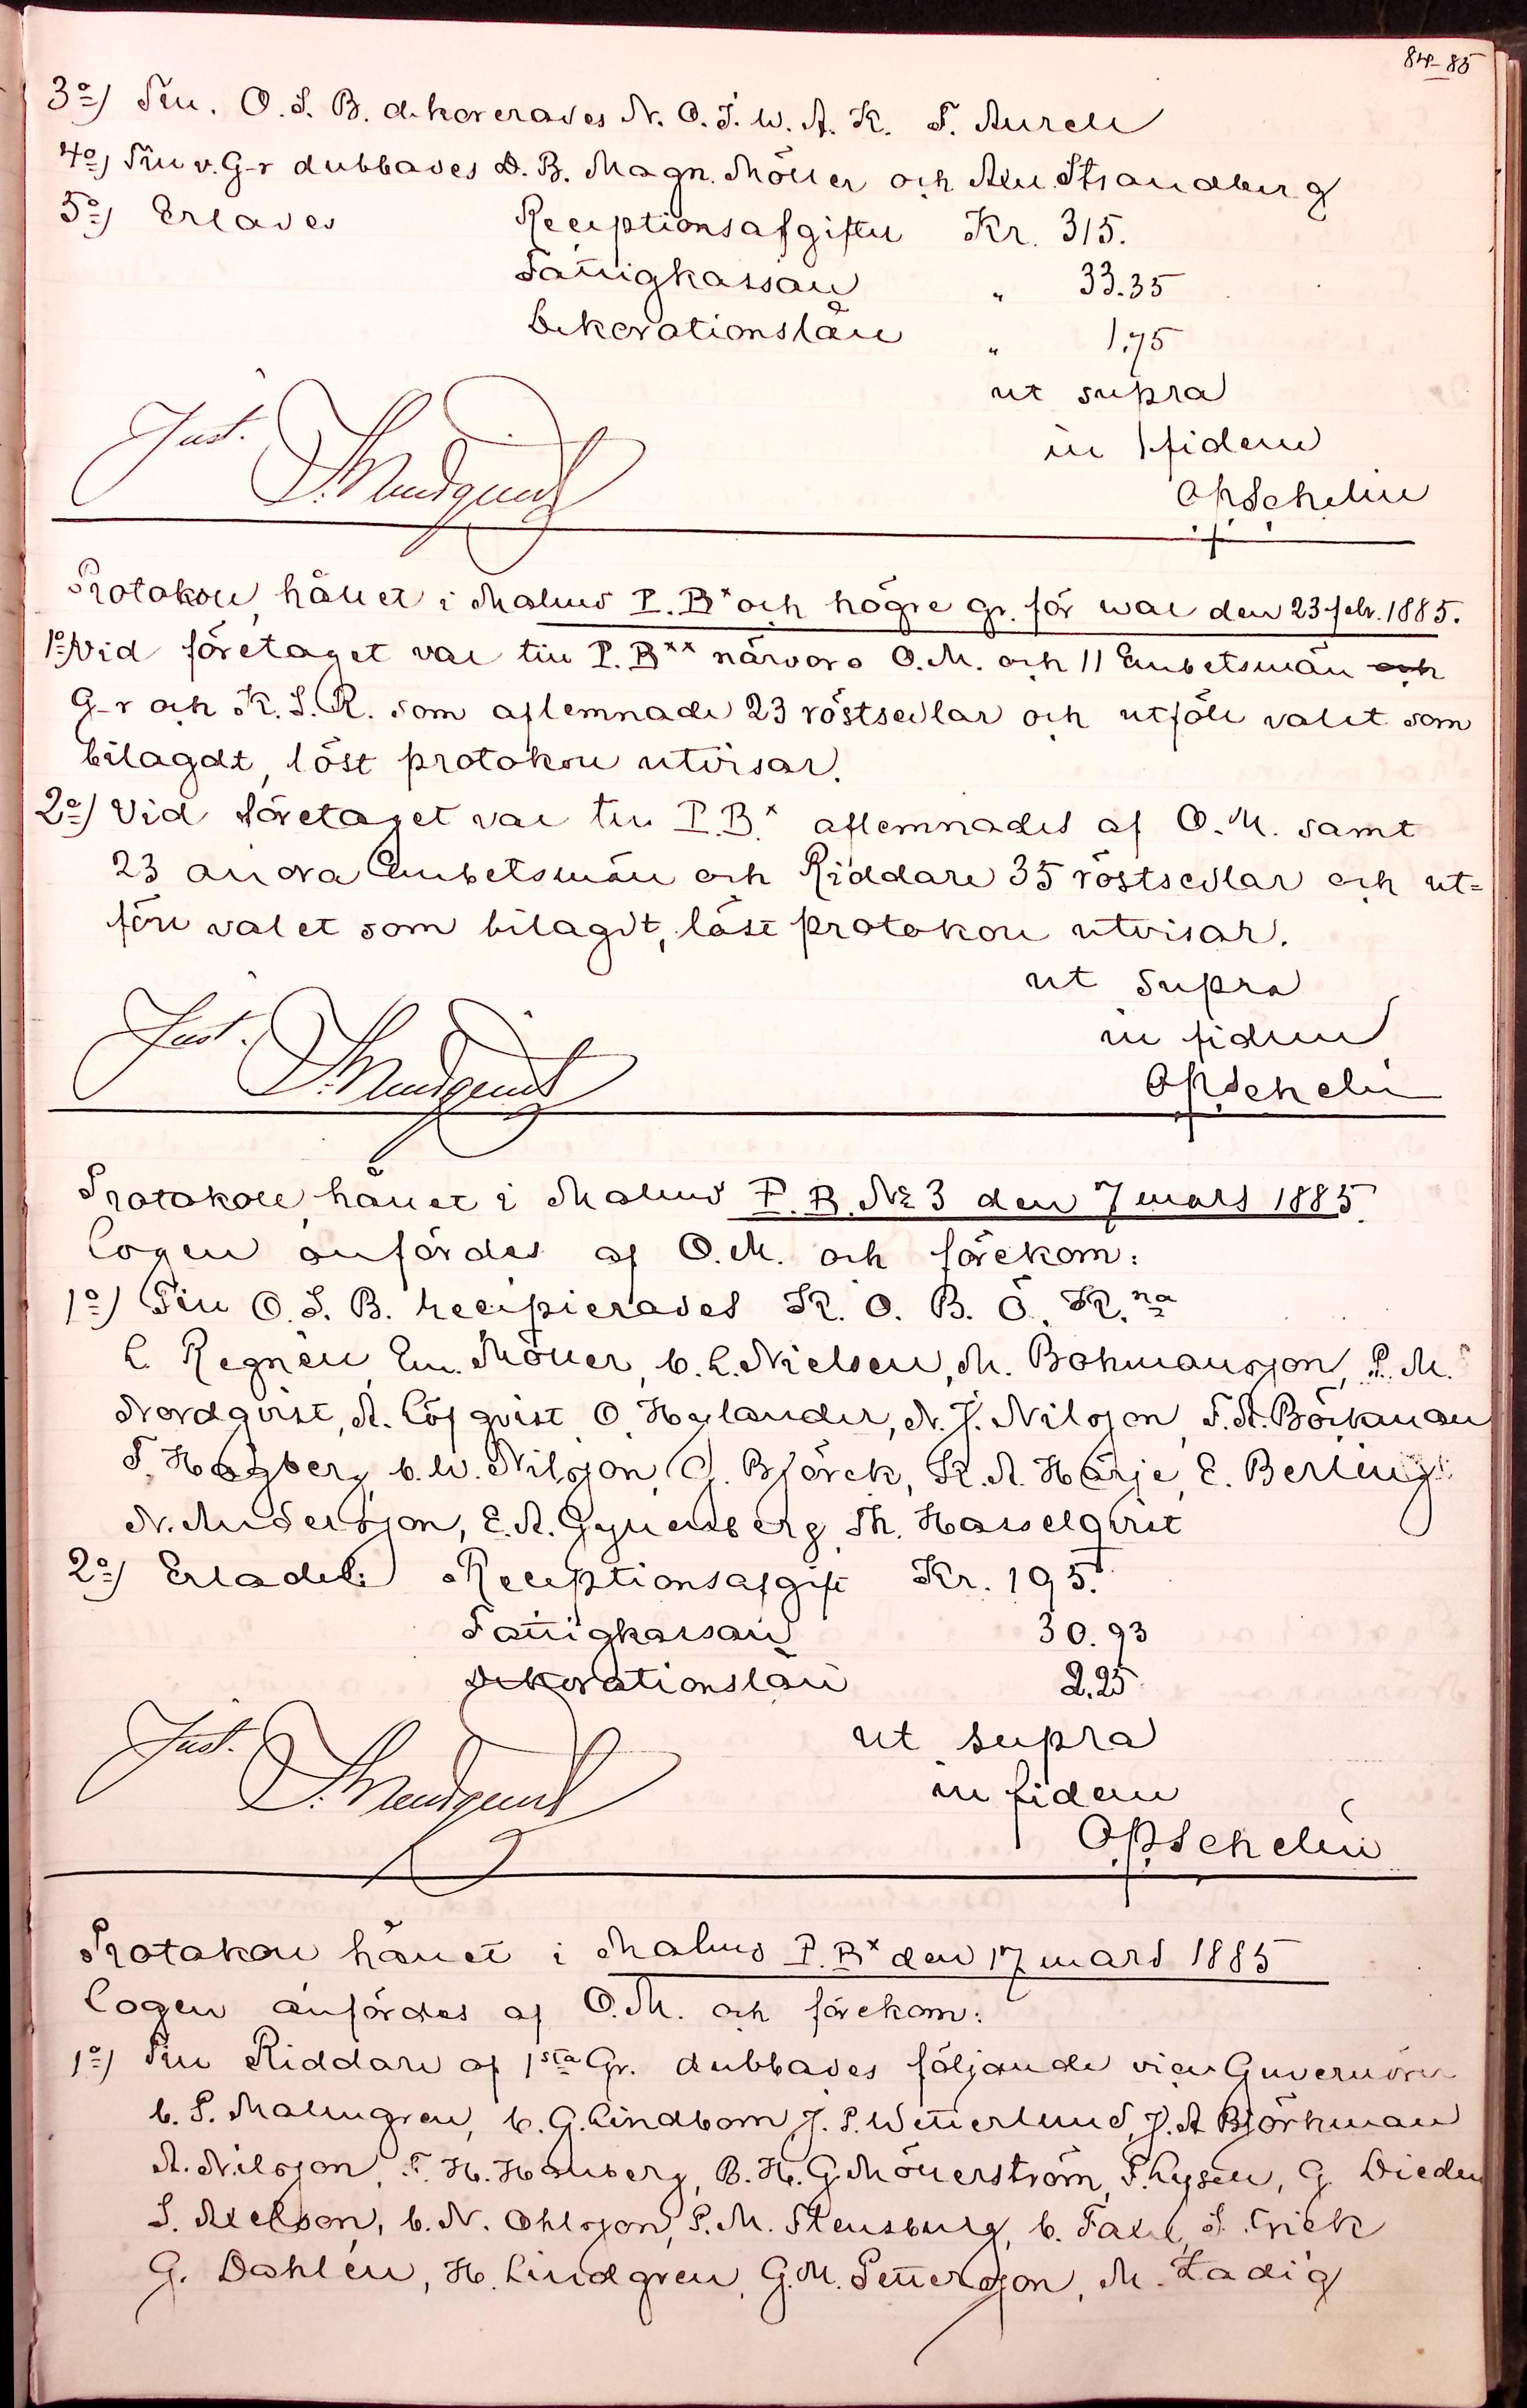 84-85
3o) Till O.S.B. dekorerades N.O.I.W.A.K. F. Aurell
4o) Till v.G-r dubbades D.B. Magn. Möller och Alu. Strandberg
5o) Erlades Receptionsafgifter Kr. 315.
Fattigkassan " 33.35
Dekorationslån " 1.75
ut supra
in fidem
Just.
OPSchelin
Protokoll, hållet i Malmö P.B.x och högre gr. för wal den 23 febr. 1885.
1o) Vid företaget val till P.B.xx närvoro O.M. och 11 Embetsmän och
G-r och K.S.R. som aflemnade 23 röstsedlar och utföll valet som
bilagdt, löst protokoll utvisar.
2o) Vid företaget val till P.B.x aflemnades af O.M. samt
23 andra Embetsmän och Riddare 35 röstsedlar och ut=
föll valet som bilagdt, löst protokoll utvisar.
ut supra
in fidem
Just.
OPSchelin
Protokoll, hållet i Malmö P.B. No 3 den 7 mars 1885.
Logen anfördes af O.M. och förekom:
1o) Till O.S.B. recipierades K.O.B.Ö.K.na
L. Regnéll, Em. Möller, C.L. Nielsen, M. Bohmansson, P.M.
Nordqvist, A. Löfqvist, O. Hylander, N.J. Nilsson, F.A. Böckman
F. Hagberg, C.W. Nilsson, G. Björck, K.A. Härje, E. Berling
N. Andersson, E.A. Gyllenberg, Th. Hasselqvist
2o) Erlades: Receptionsafgift Kr. 195.
Fattigkassan 30.93
Dekorationslån 2.25
ut supra
in fidem
Just.
OPSchelin
Protokoll hållet i Malmö P.B.x den 17 mars 1885
Logen anfördes af O.M. och förekom:
1o) Till Riddare af 1sta Gr. dubbades följande vice Guvernörer
C.P. Malmgren, C.G. Lindbom, J.P. Wetterlund, J.A. Björkman
A. Nilsson, F.H. Hallberg, B.H.G. Möllerström, P. Lysell, G. Dieden
S. Axelson, C.N. Ohlsson, P.M. Stensburg, C. Faxe, S. Frick
G. Dahlén, H. Lindgren, G.M. Pettersson, M. Zadig